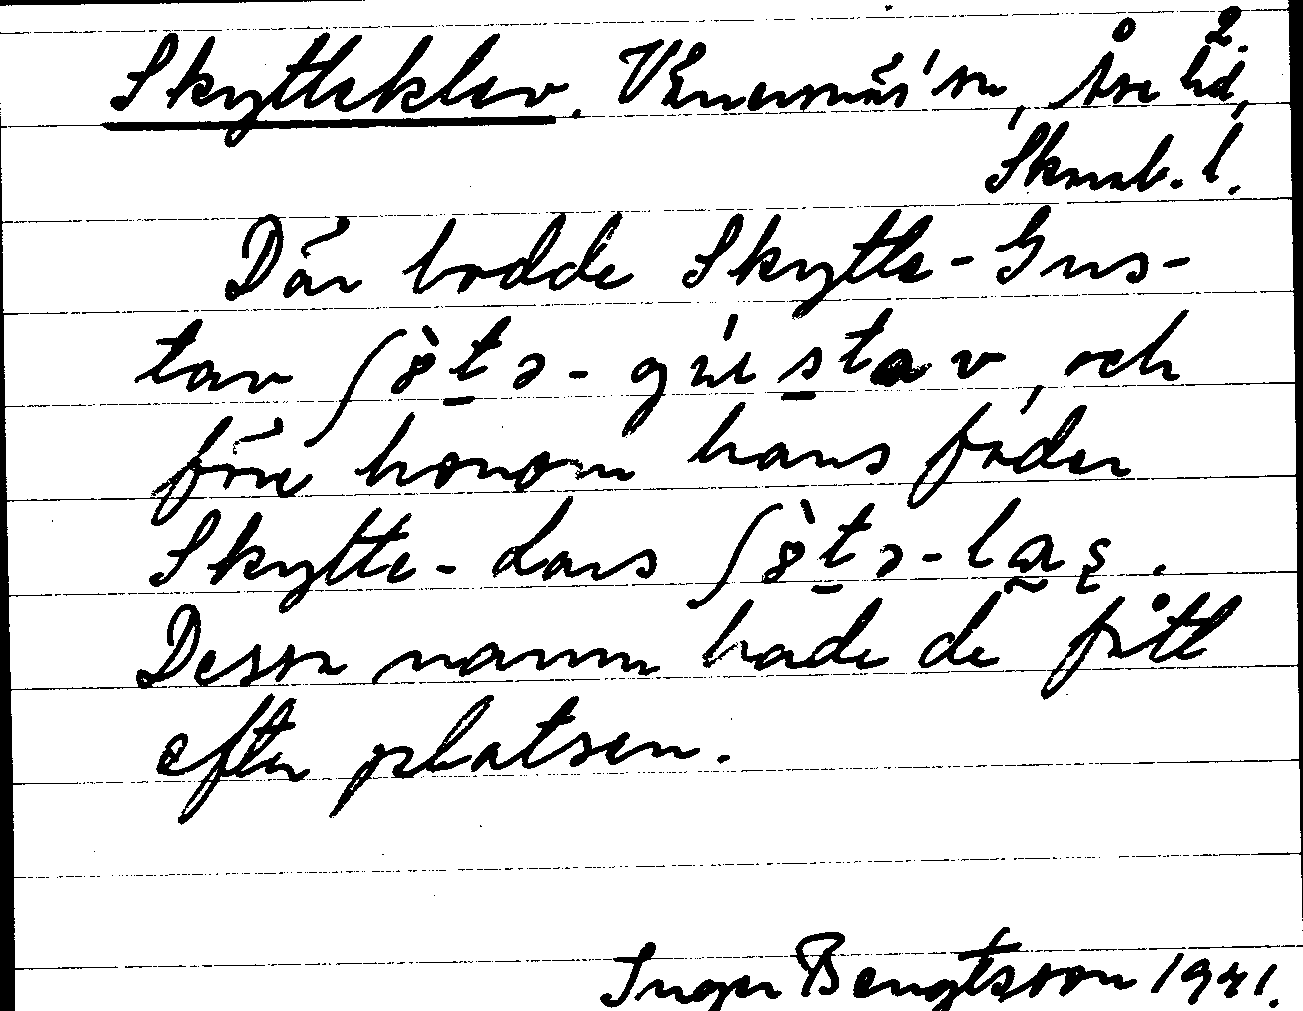 2.
Skytteklev. Vänersnäs sn, Åse hd,
Skarab. l.
Där bodde Skytte-Gus-
tav ʃ8̀tə-gústav, och
före honom hans fader
Skytte-Lars ʃ8̀tə-laş.
Dessa namn hade de fått
efter platsen.
Inger Bengtsson 1941.